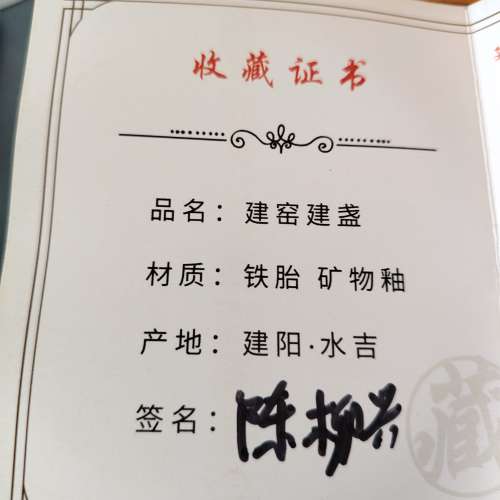 收藏证书
品名：建窑建盏
材质：铁胎 矿物釉
产地：建阳·水吉
签名：陈柳兴
藏